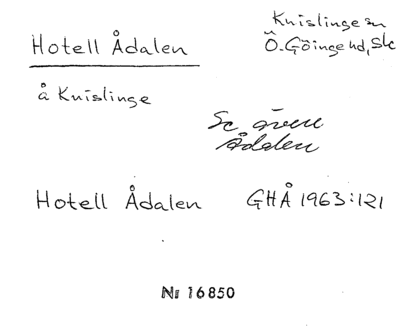 Hotell Ådalen
Knislinge sn
Ö. Göinge hd, Sk
å Knislinge
Se även
Ådalen
Hotell Ådalen GHÅ 1963:121
Nr 16850